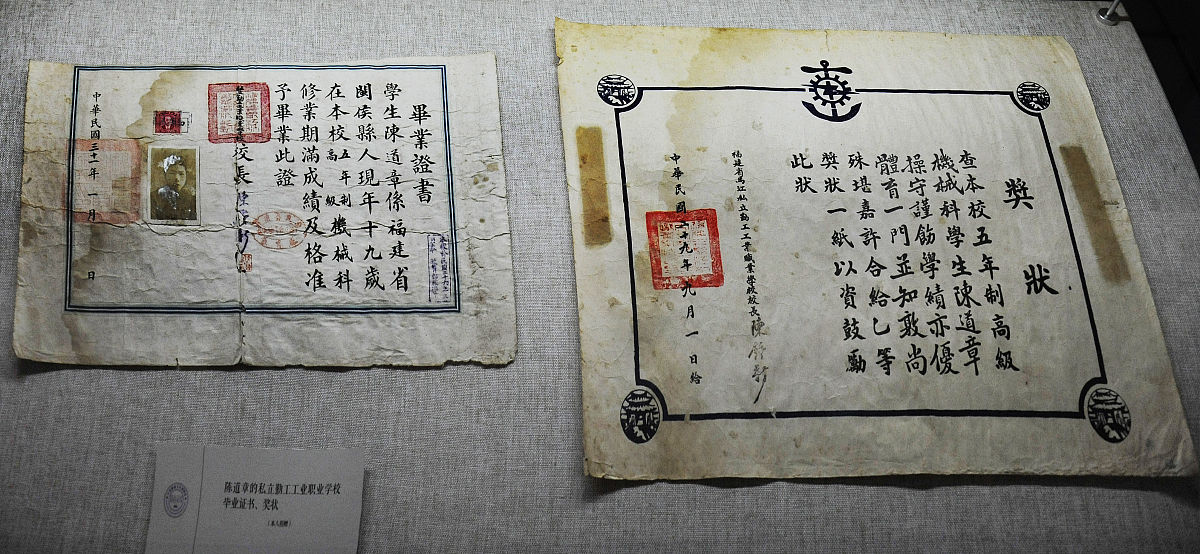 畢業證書
學生陳道章係福建省
閩侯縣人現年十九歲
在本校五年制高級機械科
修業期滿成績及格准
予畢業此證
校長
中華民國三十一年一月 日
獎狀
查本校五年制高級
機械科學生陳道章
操守謹飭學績亦優
體育一門並知敦尚
殊堪嘉許合給乙等
獎狀一紙以資鼓勵
此狀
福建省馬江私立勤工工業職業學校校長陳
中華民國二十九年九月一日給
陈道章的私立勤工工业职业学校
毕业证书、奖状
（本人捐赠）